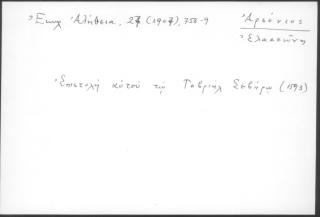 Ἐκκλ Ἀλήθεια, 27 (1907), 758-9
Ἀρσένιος
Ἐλασσῶνος
Ἐπιστολὴ αὐτοῦ τῷ Γαβριὴλ Σεβήρῳ (1593)